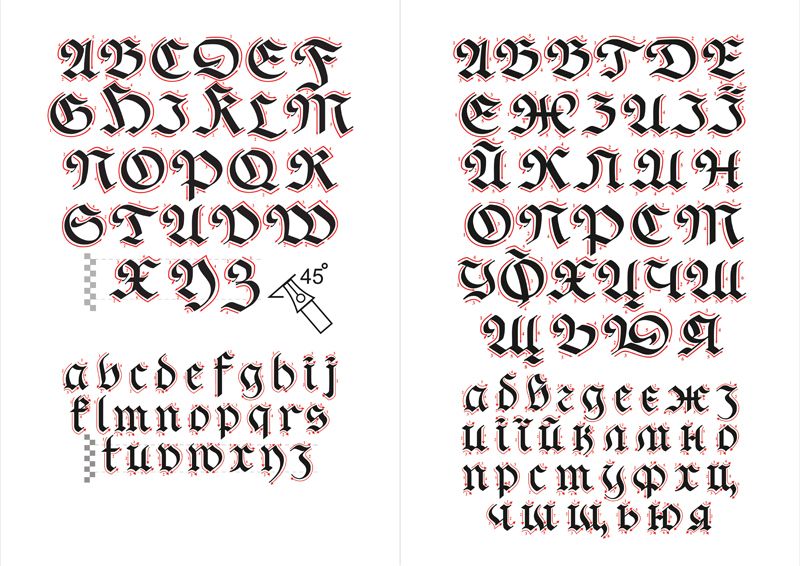 A B C D E F
G H I K L M
N O P Q R
S T U V W
X Y Z 45°
a b c d e f g h i j
k l m n o p q r s
t u v w x y z
А Б В Г Д Е
Є Ж З И І Ї
Й К Л М Н
О П Р С Т
У Ф Х Ц Ч Ш
Щ Ь Ю Я
а б в г д е є ж з
и і ї й к л м н о
п р с т у ф х ц
ч ш щ ь ю я